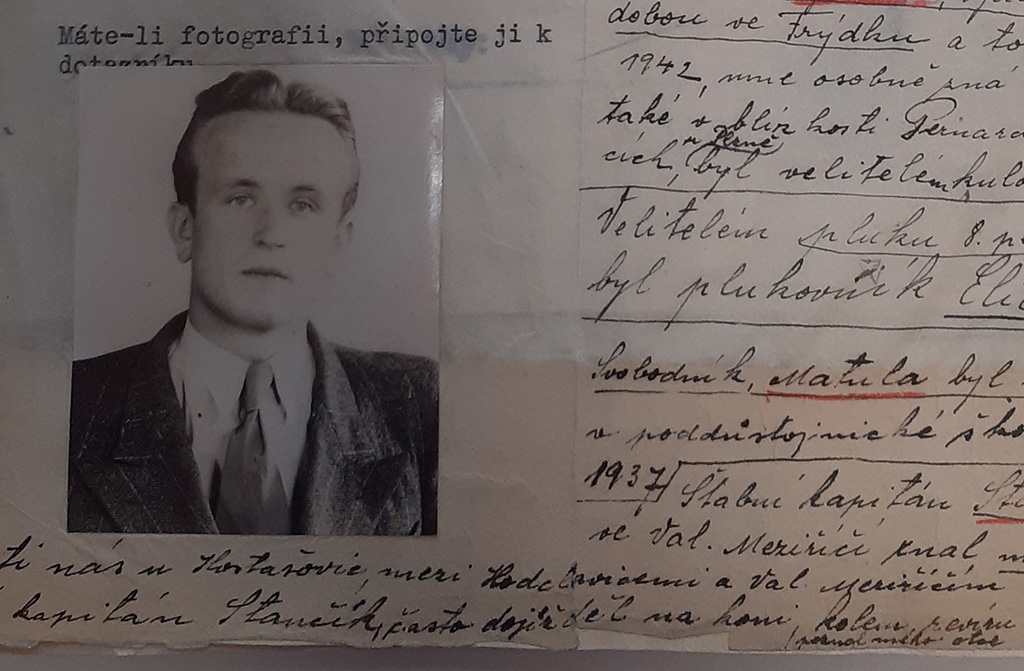 Máte-li fotografii, připojte ji k
dotazníku
dobou ve Frýdku a to
1942, mne osobně zná
také v blízkosti
u Perné
cích, byl velitelém
Velitelém pluku 8. p
byl plukovník
Svobodník, Matula byl
v poddůstojnické ško
1937 Štabní kapitán St
ve Val. Meziříčí znal m
ti nás u Hostašovic, mezi Hodslavicemi a Val. Meziříčím
kapitán Stančík, často dojížděl na koni, kolem revíru
mého otce